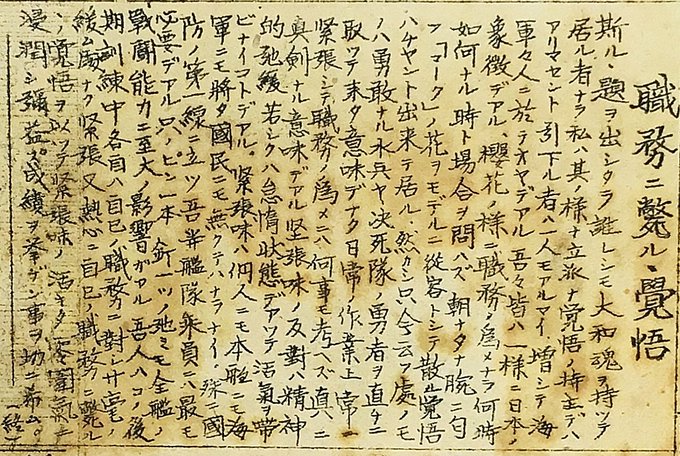 職務ニ斃ルヽ覚悟
斯ルヽ題ヲ出シタラ誰レシモ大和魂ヲ持ツテ
居ル者ナラ私ハ其ノ様ナ立派ナ覚悟ノ持主デハ
アリマセント引下ル者ハ一人モアルマイ 増シテ海
軍々人ニ於テオヤデアル 吾々皆ハ一様ニ日本ノ
象徴デアル、櫻花ノ様ニ職務ノ為メナラ何時
如何ナル時、場合ヲ問ハズ 朝ナタナ腕ニ匂
フ「マーク」ノ花ヲモデルニ従容トシテ散ル覚悟
ハチヤント出来テ居ル、然カシ只今云フ處ノモ
ノハ勇敢ナル水兵ヤ決死隊ノ勇者ヲ直チニ
取ツテ来タ意味デナク日常ノ作業上常ニ
緊張シテ職務ノ為メニハ何事モ考ヘズ真ニ
真剣ナル意味デアル 緊張味ノ反対ハ精神
的弛緩若シクハ怠惰状態デアツテ活気ヲ帯
ビナイコトデアル。緊張味ハ何人ニモ本艦ニモ海
軍ニモ将タ國民ニモ無クテハナラナイ、殊ニ國
防ノ第一線ニ立ツ吾等艦隊乗員ニハ最モ
必要デアル 只ノピン一本 針一ツノ弛ミモ全艦ノ
戦闘能力ニ至大ノ影響ガアル 吾人ハコノ後
期訓練中各自ハ自己ノ職務ニ對シ
緩ム ナク緊張又熱心ニ自己ノ職務ニ斃ル
ヽ覚悟ヲ以ツテ緊張味ノ活キタ雰囲気ニ
浸潤シ 成績ヲ挙ゲン事ヲ切ニ希ム。
（終）